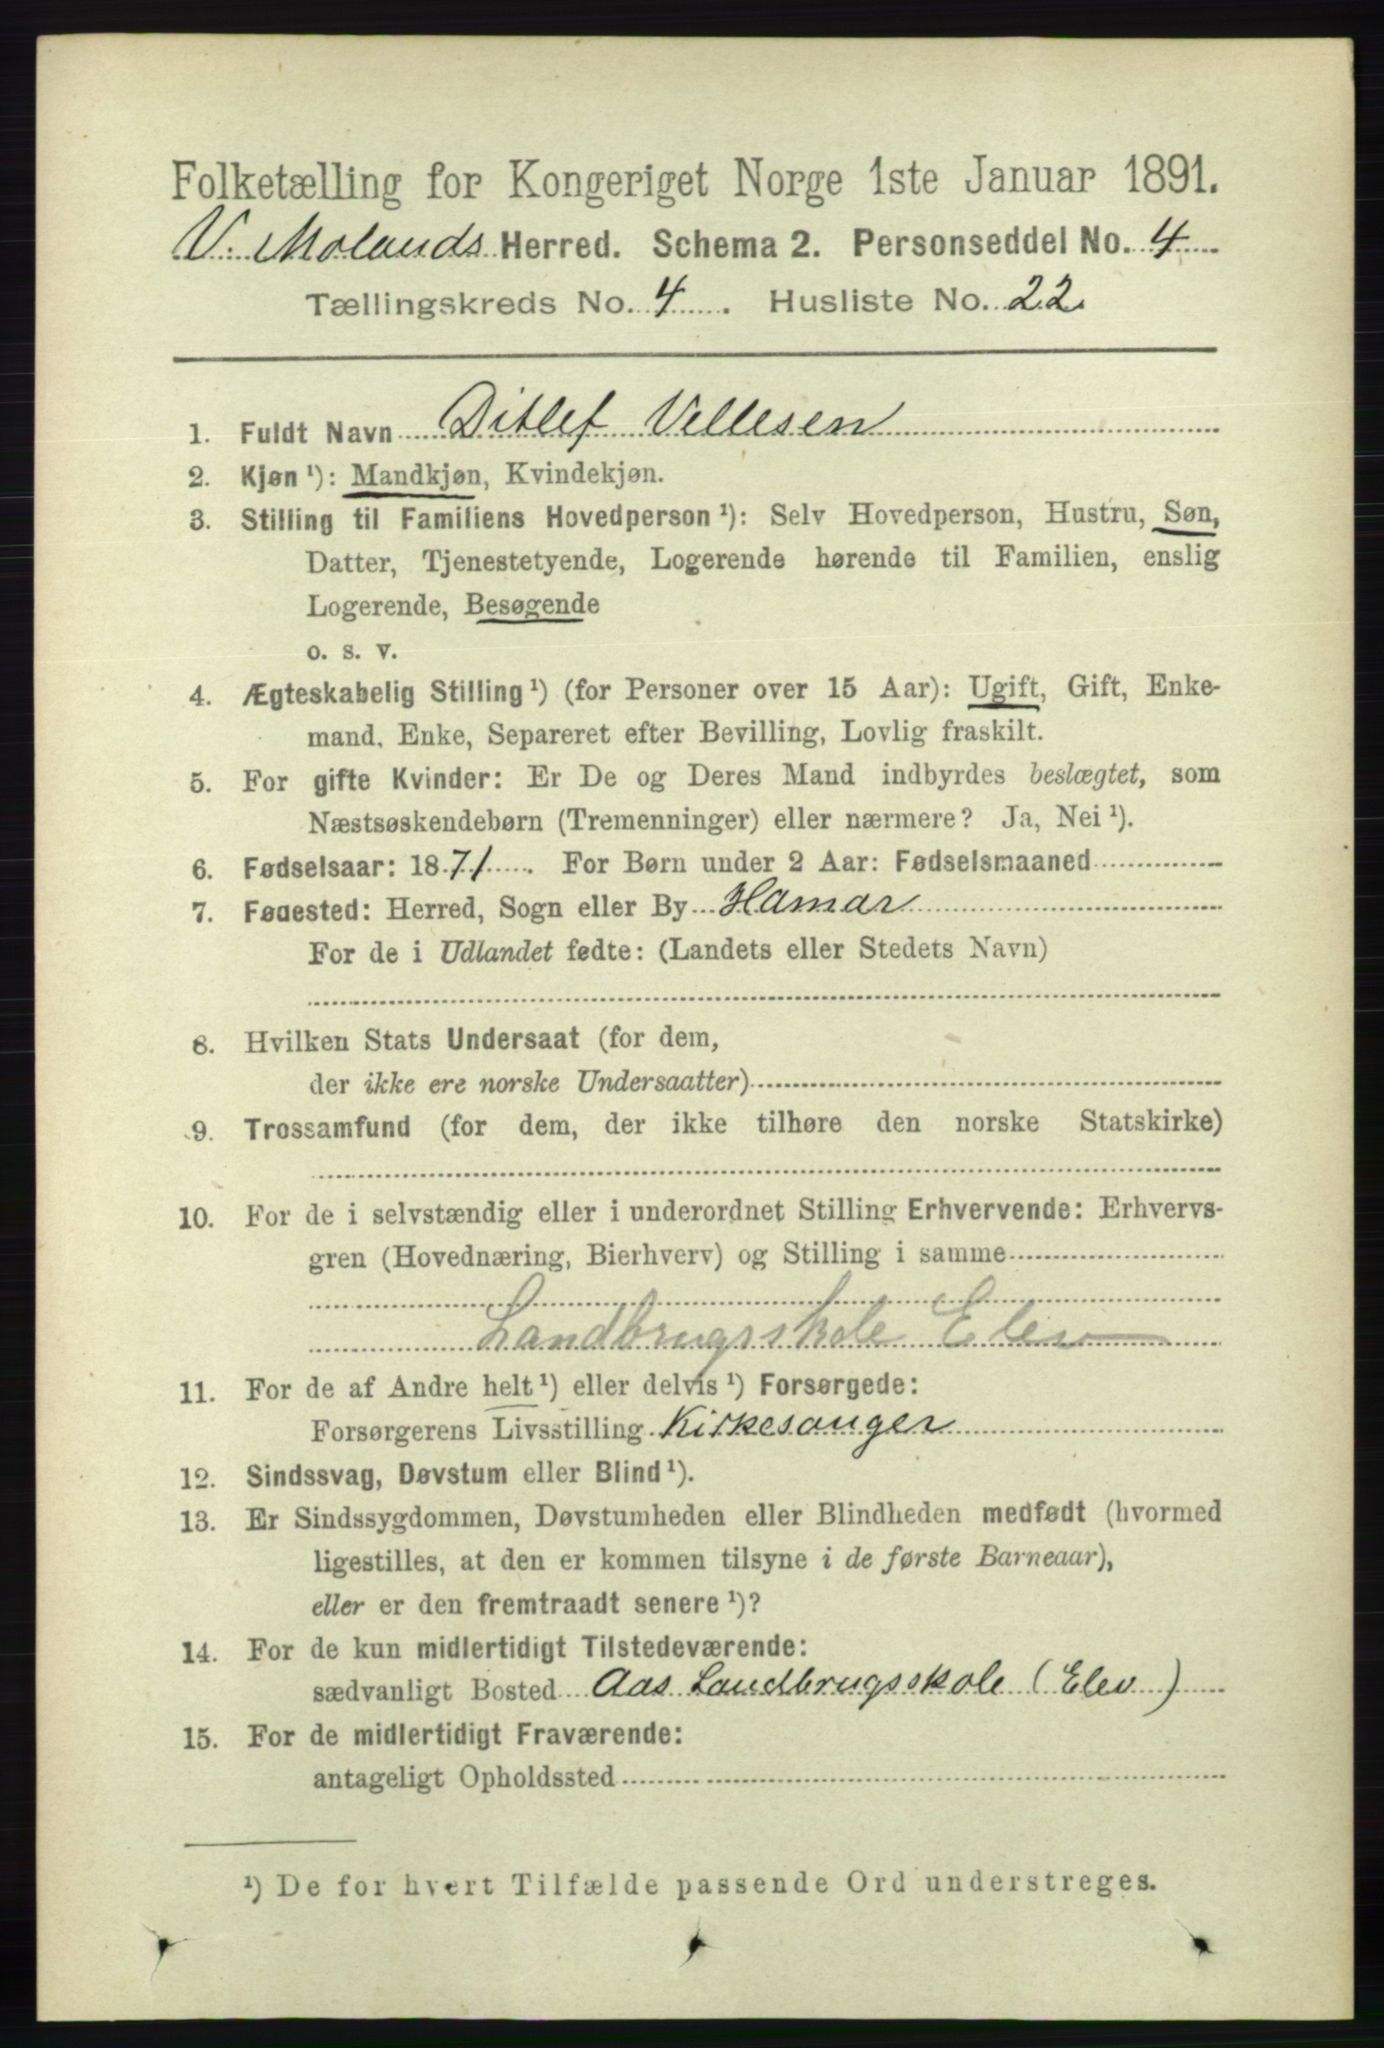 Folketælling for Kongeriget Norge 1ste Januar 1891.
V. Molands Herred. Schema 2. Personseddel No. 4
Tællingskreds No. 4. Husliste No. 22
1. Fuldt Navn Ditlef Vellesen
2. Kjøn ¹): Mandkjøn, Kvindekjøn.
3. Stilling til Familiens Hovedperson ¹): Selv Hovedperson, Hustru, Søn,
Datter, Tjenestetyende, Logerende hørende til Familien, enslig
Logerende, Besøgende
o. s. v.
4. Ægteskabelig Stilling ¹) (for Personer over 15 Aar): Ugift, Gift, Enke-
mand, Enke, Separeret efter Bevilling, Lovlig fraskilt.
5. For gifte Kvinder: Er De og Deres Mand indbyrdes beslægtet, som
Næstsøskendebørn (Tremenninger) eller nærmere? Ja, Nei ¹).
6. Fødselsaar: 1871. For Børn under 2 Aar: Fødselsmaaned
7. Fødested: Herred, Sogn eller By Hamar
For de i Udlandet fødte: (Landets eller Stedets Navn)
8. Hvilken Stats Undersaat (for dem,
der ikke ere norske Undersaatter)
9. Trossamfund (for dem, der ikke tilhøre den norske Statskirke)
10. For de i selvstændig eller i underordnet Stilling Erhvervende: Erhvervs-
gren (Hovednæring, Bierhverv) og Stilling i samme
Landbrugsskole Elev
11. For de af Andre helt ¹) eller delvis ¹) Forsørgede:
Forsørgerens Livsstilling Kirkesanger
12. Sindssvag, Døvstum eller Blind ¹).
13. Er Sindssygdommen, Døvstumheden eller Blindheden medfødt (hvormed
ligestilles, at den er kommen tilsyne i de første Barneaar),
eller er den fremtraadt senere ¹)?
14. For de kun midlertidigt Tilstedeværende:
sædvanligt Bosted Aas Landbrugsskole (Elev)
15. For de midlertidigt Fraværende:
antageligt Opholdssted
¹) De for hvert Tilfælde passende Ord understreges.